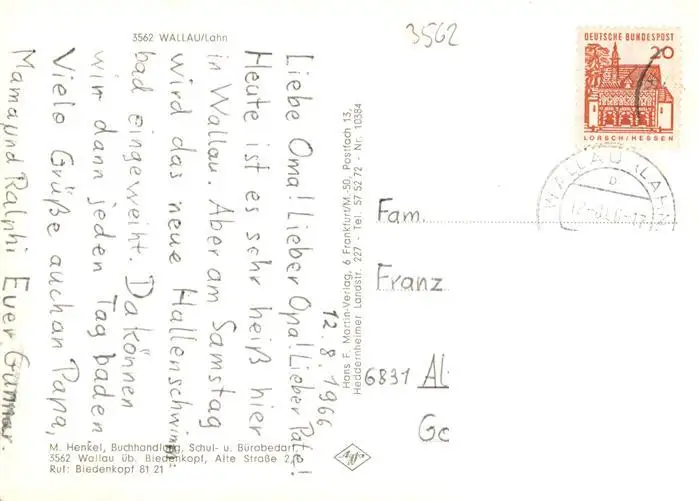 3562 WALLAU/Lahn
3562
DEUTSCHE BUNDESPOST
20
LORSCH/HESSEN
WALLAU (LAHN
b
12.8.1966
Liebe Oma! Lieber Opa! Lieber Pate!
Heute ist es sehr heiß hier
in Wallau. Aber am Samstag
wird das neue Hallenschwimm-
bad eingeweiht. Da können
wir dann jeden Tag baden
Viele Grüße auch an Papa,
Mama und Ralphi Euer Gunnar.
Hans F. Martin-Verlag, 6 Frankfurt/M.-50, Postfach 13,
Heddernheimer Landstr. 227 - Tel. 57 52 72 - Nr. 10384
Fam.
Franz
6831 Al
Ge
M. Henkel, Buchhandlung, Schul- u. Bürobedarf,
3562 Wallau üb. Biedenkopf, Alte Straße 2,
Ruf: Biedenkopf 81 21